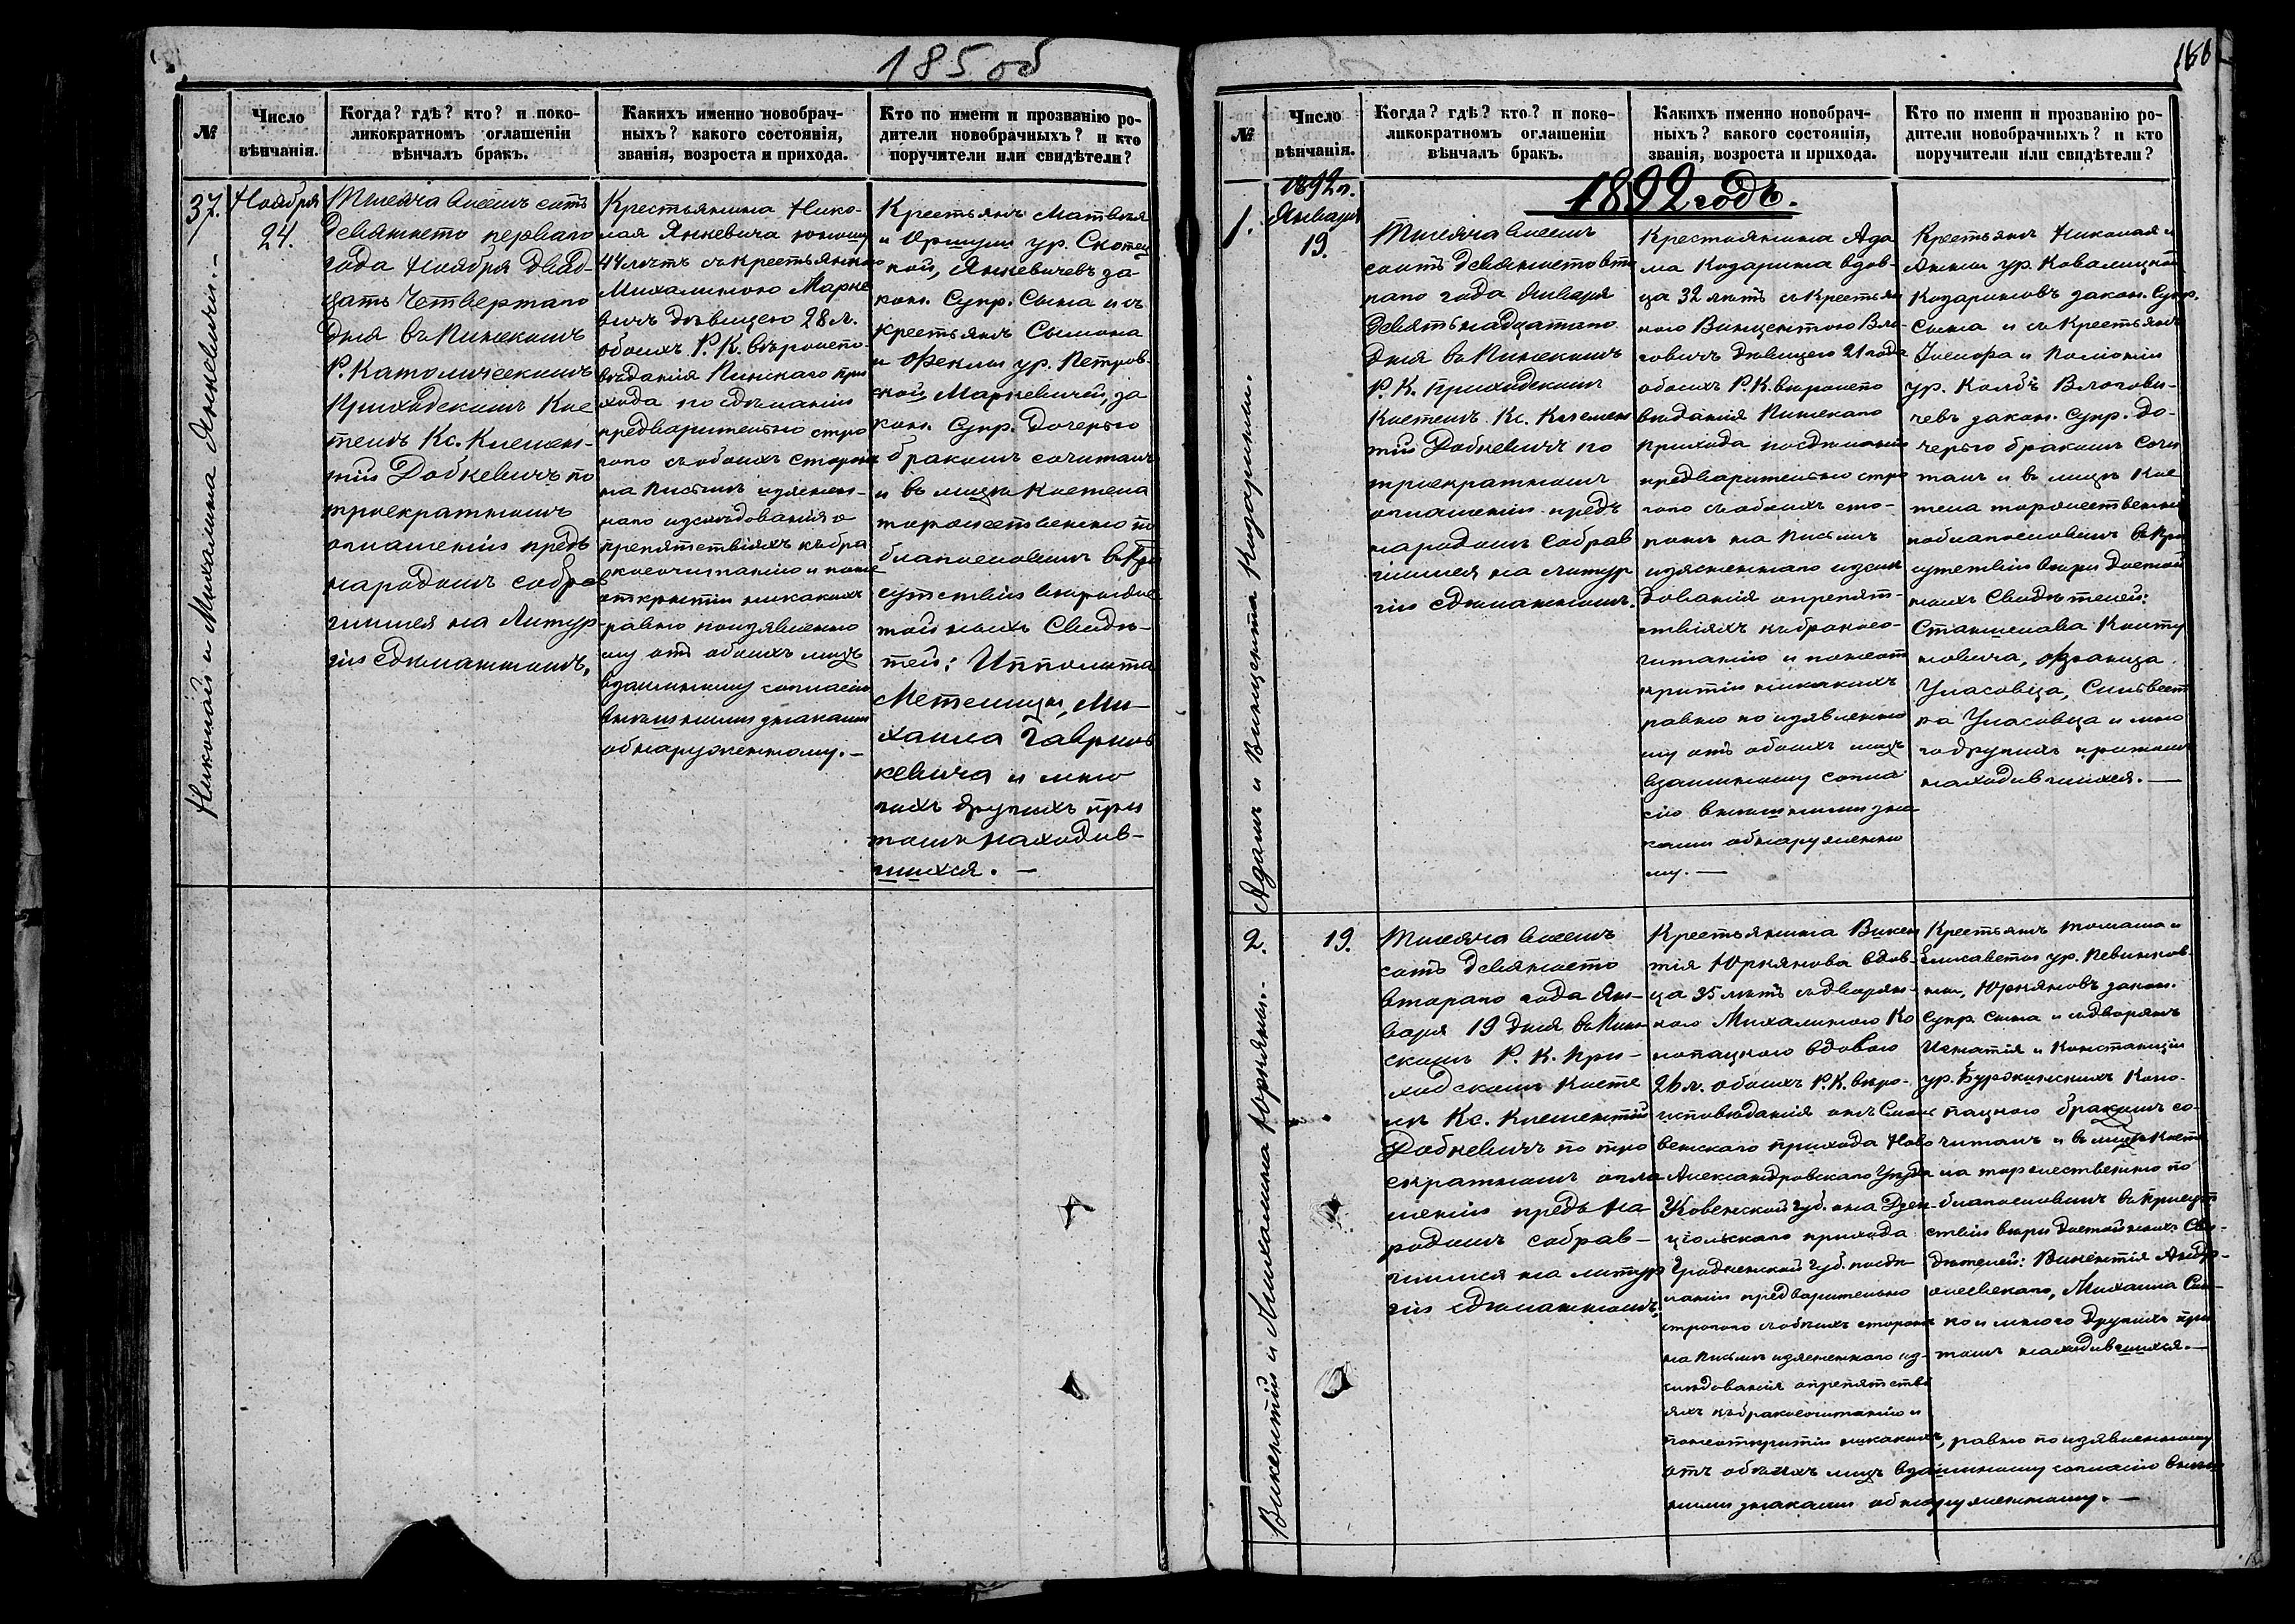 185 об
№
Число
вѣнчанія.
Когда? гдѣ? кто? и поко-
ликократномъ оглашеніи
вѣнчалъ бракъ.
Какихъ именно новобрач-
ныхъ? какого состоянія,
званія, возроста и прихода.
Кто по имени и прозванію ро-
дители новобрачныхъ? и кто
поручители или свидѣтели?
37.
Николай и Михалина Янкевичи.-
Ноября
24.
Тысяча восемь сотъ
девяносто перваго
года Ноября двад-
цать четвертаго
дня въ Пинскомъ
Р. Католическомъ
Приходскомъ Кос
телѣ Кс. Клемен-
тій Добкевичъ по
троекратномъ
оглашеніи предъ
народомъ собрав
шимся на Литур
гіи сдѣланномъ.
Крестьянина Нико-
лая Янкевича юношу
44 лѣтъ съ крестьянкою
Михалиною Марке
вичъ дѣвицею 28 л.
обоихъ Р. К. вѣроиспо-
вѣданія Пинскаго при
хода по сдѣланіи
предварительно стро
гаго съ обоихъ сторонъ
на письмѣ изяснен-
наго изслѣдованія о
препятствіяхъ къ бра
косочитанію и поне
открытіи никакихъ
равно поизявленно
му отъ обоихъ лицъ
взаимному согласію
внѣшними знаками
обнаруженному.-
Крестьянъ Матвея
и Уршули ур. Скотец
кой, Янкевичевъ за
кон. Супр. Сына и съ
крестьянъ Сымона
и Феклы ур. Петров-
ской Маркевичей, за
кон. Супр. Дочерью
бракомъ сочиталъ
и въ лицѣ Костела
торжественно по
благословилъ въ при
сутствіи вѣродос
тойныхъ Свидѣ-
тей: Ипполита
Метелицы, Ми-
хаила Гаврилъ
кевича и мно
гихъ другихъ при
томъ находив-
шихся. -
186
№
Число
вѣнчанія.
Когда? гдѣ? кто? и поко-
ликократномъ оглашеніи
вѣнчалъ бракъ.
Какихъ именно новобрач-
ныхъ? какого состоянія,
званія, возроста и прихода.
Кто по имени и прозванію ро-
дители новобрачныхъ? и кто
поручители или свидѣтели?
1892 годъ.
1.
Адамъ и Винцента Кодарины.
1892 г.
Января
19.
Тысяча восемь
сотъ девяносто вто
раго года Января
девятьнадцатаго
дня въ Пинскомъ
Р. К. Приходскомъ
Костелѣ Кс. Клемен
тій Добкевичъ по
троекратномъ
оглашеніи предъ
народомъ собрав
шимся на литур
гіи сдѣланномъ.
Крестьянина Ада
ма Козарина вдов-
ца 32 лѣтъ съ Крестьян
кою Винцентою Вла-
говичъ дѣвицею 21 года
обоихъ Р. К. вѣроиспо
вѣданія Пинскаго
прихода посдѣланіи
предварительно стро
гаго съ обоихъ сто-
ронъ на письмѣ
изясненнаго изслѣ
дованія опрепят-
ствіяхъ къ бракосо-
читанію и понеот
крытіи никакихъ
равно по изявленно
му отъ обоихъ лицъ
взаимному согла
сію внѣшними зна
ками обнаруженно
му. -
Крестьянъ Николая и
Анны ур. Ковалицкой
Козариновъ закон. Супр.
Сына и съ Крестьянъ
ур. Колбъ Влогови-
чевъ закон. Супр. До-
черью бракомъ сочи
талъ и въ лицѣ Кос
тела торжественно
поблагословилъ въ при
сутствіи вѣри достой
ныхъ Свидѣтелей:
Станислава Контy
новича, Франца
Уласовца, Сильвест
ра Уласовца и мно
годругихъ притомъ
находившихся. -
2.
Викентій и Михалина Юркяны.-
19.
Тысяча восемь
сотъ девяносто
втораго года Ян-
варя 19 дня въ Пин-
скомъ Р. К. При-
ходскомъ Косте
лѣ Кс. Клементій
Добкевичъ по тро
екратномъ огла
шеніи предъ на
родомъ собрав-
шимся на литур
гіи сдѣланномъ.
Крестьянина Викен
тія Юркянова вдов-
ца 35 лѣтъ съ дворян-
кою Михалиною Ко
нопацкою вдовою
26 л. обоихъ Р. К. вѣро-
исповѣданія онъ
венскаго прихода Ново
Александровскаго Уѣзда
Ковенской Губ. она Дзен-
ціольскаго прихода
Гродненской Губ. посдѣ
ланіи предварительно
строгаго съ обоихъ сторонъ
на письмѣ изясненнаго из-
слѣдованія опрепятстві
яхъ къ бракосочитанію и
понеоткрытіи никакихъ, равно по изявленному
отъ обоихъ лицъ взаимному согласію внѣш
ними знаками обнаруженному. -
Крестьянъ Томаша и
Елисаветы ур. Певинков-
ны, Юркяновъ закон.
Супр. Сына и съ дворянъ
Игнатія и Констанціи
ур. Бурожинскихъ Коно-
пацкою бракомъ со-
читалъ и въ лицѣ Косте
ла торжественно по
благословилъ въ присут
ствіи вѣри достойныхъ Сви-
дѣтелей: Викентія Андр-
жеевскаго, Михаила
но и много другихъ при
томъ находившихся. -